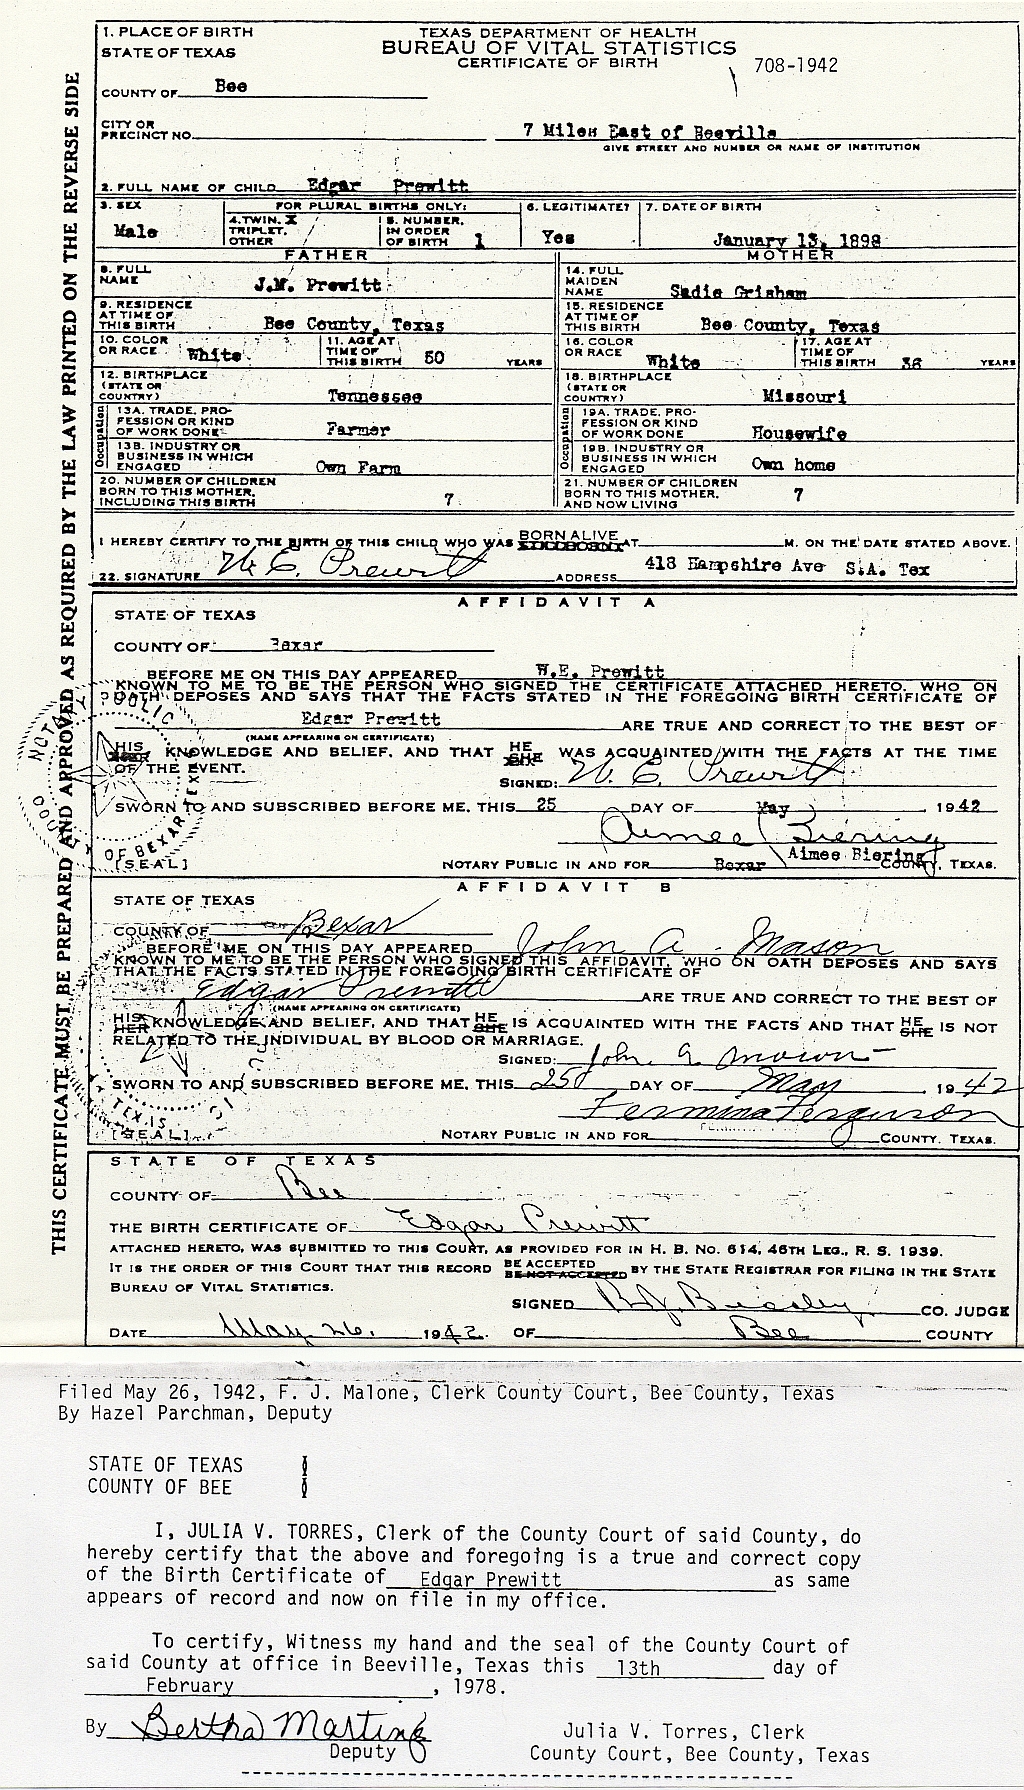 THIS CERTIFICATE MUST BE PREPARED AND APPROVED AS REQUIRED BY THE LAW PRINTED ON THE REVERSE SIDE
1. PLACE OF BIRTH
STATE OF TEXAS
TEXAS DEPARTMENT OF HEALTH
BUREAU OF VITAL STATISTICS
CERTIFICATE OF BIRTH
708-1942
COUNTY OF Bee
CITY OR
PRECINCT NO. 7 Miles East of Beeville
GIVE STREET AND NUMBER OR NAME OF INSTITUTION
2. FULL NAME OF CHILD Edgar Prewitt
3. SEX
Male
FOR PLURAL BIRTHS ONLY:
4. TWIN, X
TRIPLET,
OTHER
5. NUMBER,
IN ORDER
OF BIRTH 1
6. LEGITIMATE?
Yes
7. DATE OF BIRTH
January 13, 1898
FATHER
MOTHER
8. FULL
NAME J.M. Prewitt
14. FULL
MAIDEN
NAME Sadie Grisham
9. RESIDENCE
AT TIME OF
THIS BIRTH Bee County, Texas
15. RESIDENCE
AT TIME OF
THIS BIRTH Bee County, Texas
10. COLOR
OR RACE White
11. AGE AT
TIME OF
THIS BIRTH 50 YEARS
16. COLOR
OR RACE White
17. AGE AT
TIME OF
THIS BIRTH 38 YEARS
12. BIRTHPLACE
(STATE OR
COUNTRY) Tennessee
18. BIRTHPLACE
(STATE OR
COUNTRY) Missouri
Occupation
13A. TRADE, PRO-
FESSION OR KIND
OF WORK DONE Farmer
13B. INDUSTRY OR
BUSINESS IN WHICH
ENGAGED Own Farm
Occupation
19A. TRADE, PRO-
FESSION OR KIND
OF WORK DONE Housewife
19B. INDUSTRY OR
BUSINESS IN WHICH
ENGAGED Own home
20. NUMBER OF CHILDREN
BORN TO THIS MOTHER,
INCLUDING THIS BIRTH 7
21. NUMBER OF CHILDREN
BORN TO THIS MOTHER,
AND NOW LIVING 7
I HEREBY CERTIFY TO THE BIRTH OF THIS CHILD WHO WAS BORN ALIVE AT M. ON THE DATE STATED ABOVE.
22. SIGNATURE W. E. Prewitt ADDRESS 418 Hampshire Ave S.A. Tex
AFFIDAVIT A
STATE OF TEXAS
COUNTY OF Bexar
BEFORE ME ON THIS DAY APPEARED W.E. Prewitt
KNOWN TO ME TO BE THE PERSON WHO SIGNED THE CERTIFICATE ATTACHED HERETO, WHO ON
OATH DEPOSES AND SAYS THAT THE FACTS STATED IN THE FOREGOING BIRTH CERTIFICATE OF
Edgar Prewitt ARE TRUE AND CORRECT TO THE BEST OF
(NAME APPEARING ON CERTIFICATE)
HIS HER KNOWLEDGE AND BELIEF, AND THAT HE SHE WAS ACQUAINTED WITH THE FACTS AT THE TIME
OF THE EVENT.
SIGNED: W. E. Prewitt
SWORN TO AND SUBSCRIBED BEFORE ME, THIS 25 DAY OF May 1942
Aimee Biering
Aimee Biering
[SEAL] NOTARY PUBLIC IN AND FOR Bexar COUNTY, TEXAS.
NOTARY PUBLIC
COUNTY OF BEXAR TEXAS
AFFIDAVIT B
STATE OF TEXAS
COUNTY OF Bexar
BEFORE ME ON THIS DAY APPEARED John A. Mason
KNOWN TO ME TO BE THE PERSON WHO SIGNED THIS AFFIDAVIT, WHO ON OATH DEPOSES AND SAYS
THAT THE FACTS STATED IN THE FOREGOING BIRTH CERTIFICATE OF
Edgar Prewitt ARE TRUE AND CORRECT TO THE BEST OF
(NAME APPEARING ON CERTIFICATE)
HIS HER KNOWLEDGE AND BELIEF, AND THAT HE SHE IS ACQUAINTED WITH THE FACTS AND THAT HE SHE IS NOT
RELATED TO THE INDIVIDUAL BY BLOOD OR MARRIAGE.
SIGNED: John A Mason
SWORN TO AND SUBSCRIBED BEFORE ME, THIS 25 DAY OF May 1942
Fermina Ferguson
[SEAL] NOTARY PUBLIC IN AND FOR COUNTY, TEXAS.
TEXAS
STATE OF TEXAS
COUNTY OF Bee
THE BIRTH CERTIFICATE OF Edgar Prewitt
ATTACHED HERETO, WAS SUBMITTED TO THIS COURT, AS PROVIDED FOR IN H. B. NO. 614, 46TH LEG., R. S. 1939.
IT IS THE ORDER OF THIS COURT THAT THIS RECORD BE ACCEPTED BE NOT ACCEPTED BY THE STATE REGISTRAR FOR FILING IN THE STATE
BUREAU OF VITAL STATISTICS.
SIGNED R.J. Beasley CO. JUDGE
DATE May 26, 1942. OF Bee COUNTY
Filed May 26, 1942, F. J. Malone, Clerk County Court, Bee County, Texas
By Hazel Parchman, Deputy
STATE OF TEXAS
COUNTY OF BEE
I, JULIA V. TORRES, Clerk of the County Court of said County, do
hereby certify that the above and foregoing is a true and correct copy
of the Birth Certificate of Edgar Prewitt as same
appears of record and now on file in my office.
To certify, Witness my hand and the seal of the County Court of
said County at office in Beeville, Texas this 13th day of
February, 1978.
By Bertha Martinez
Deputy
Julia V. Torres, Clerk
County Court, Bee County, Texas